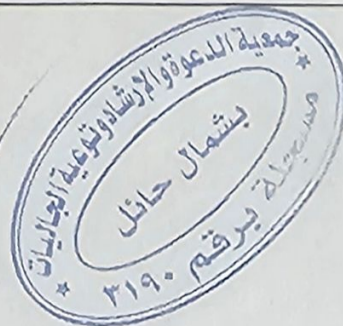 جمعية الدعوة والإرشاد وتوعية الجاليات
بشمال حائل
مسجلة برقم ٣١٩٠